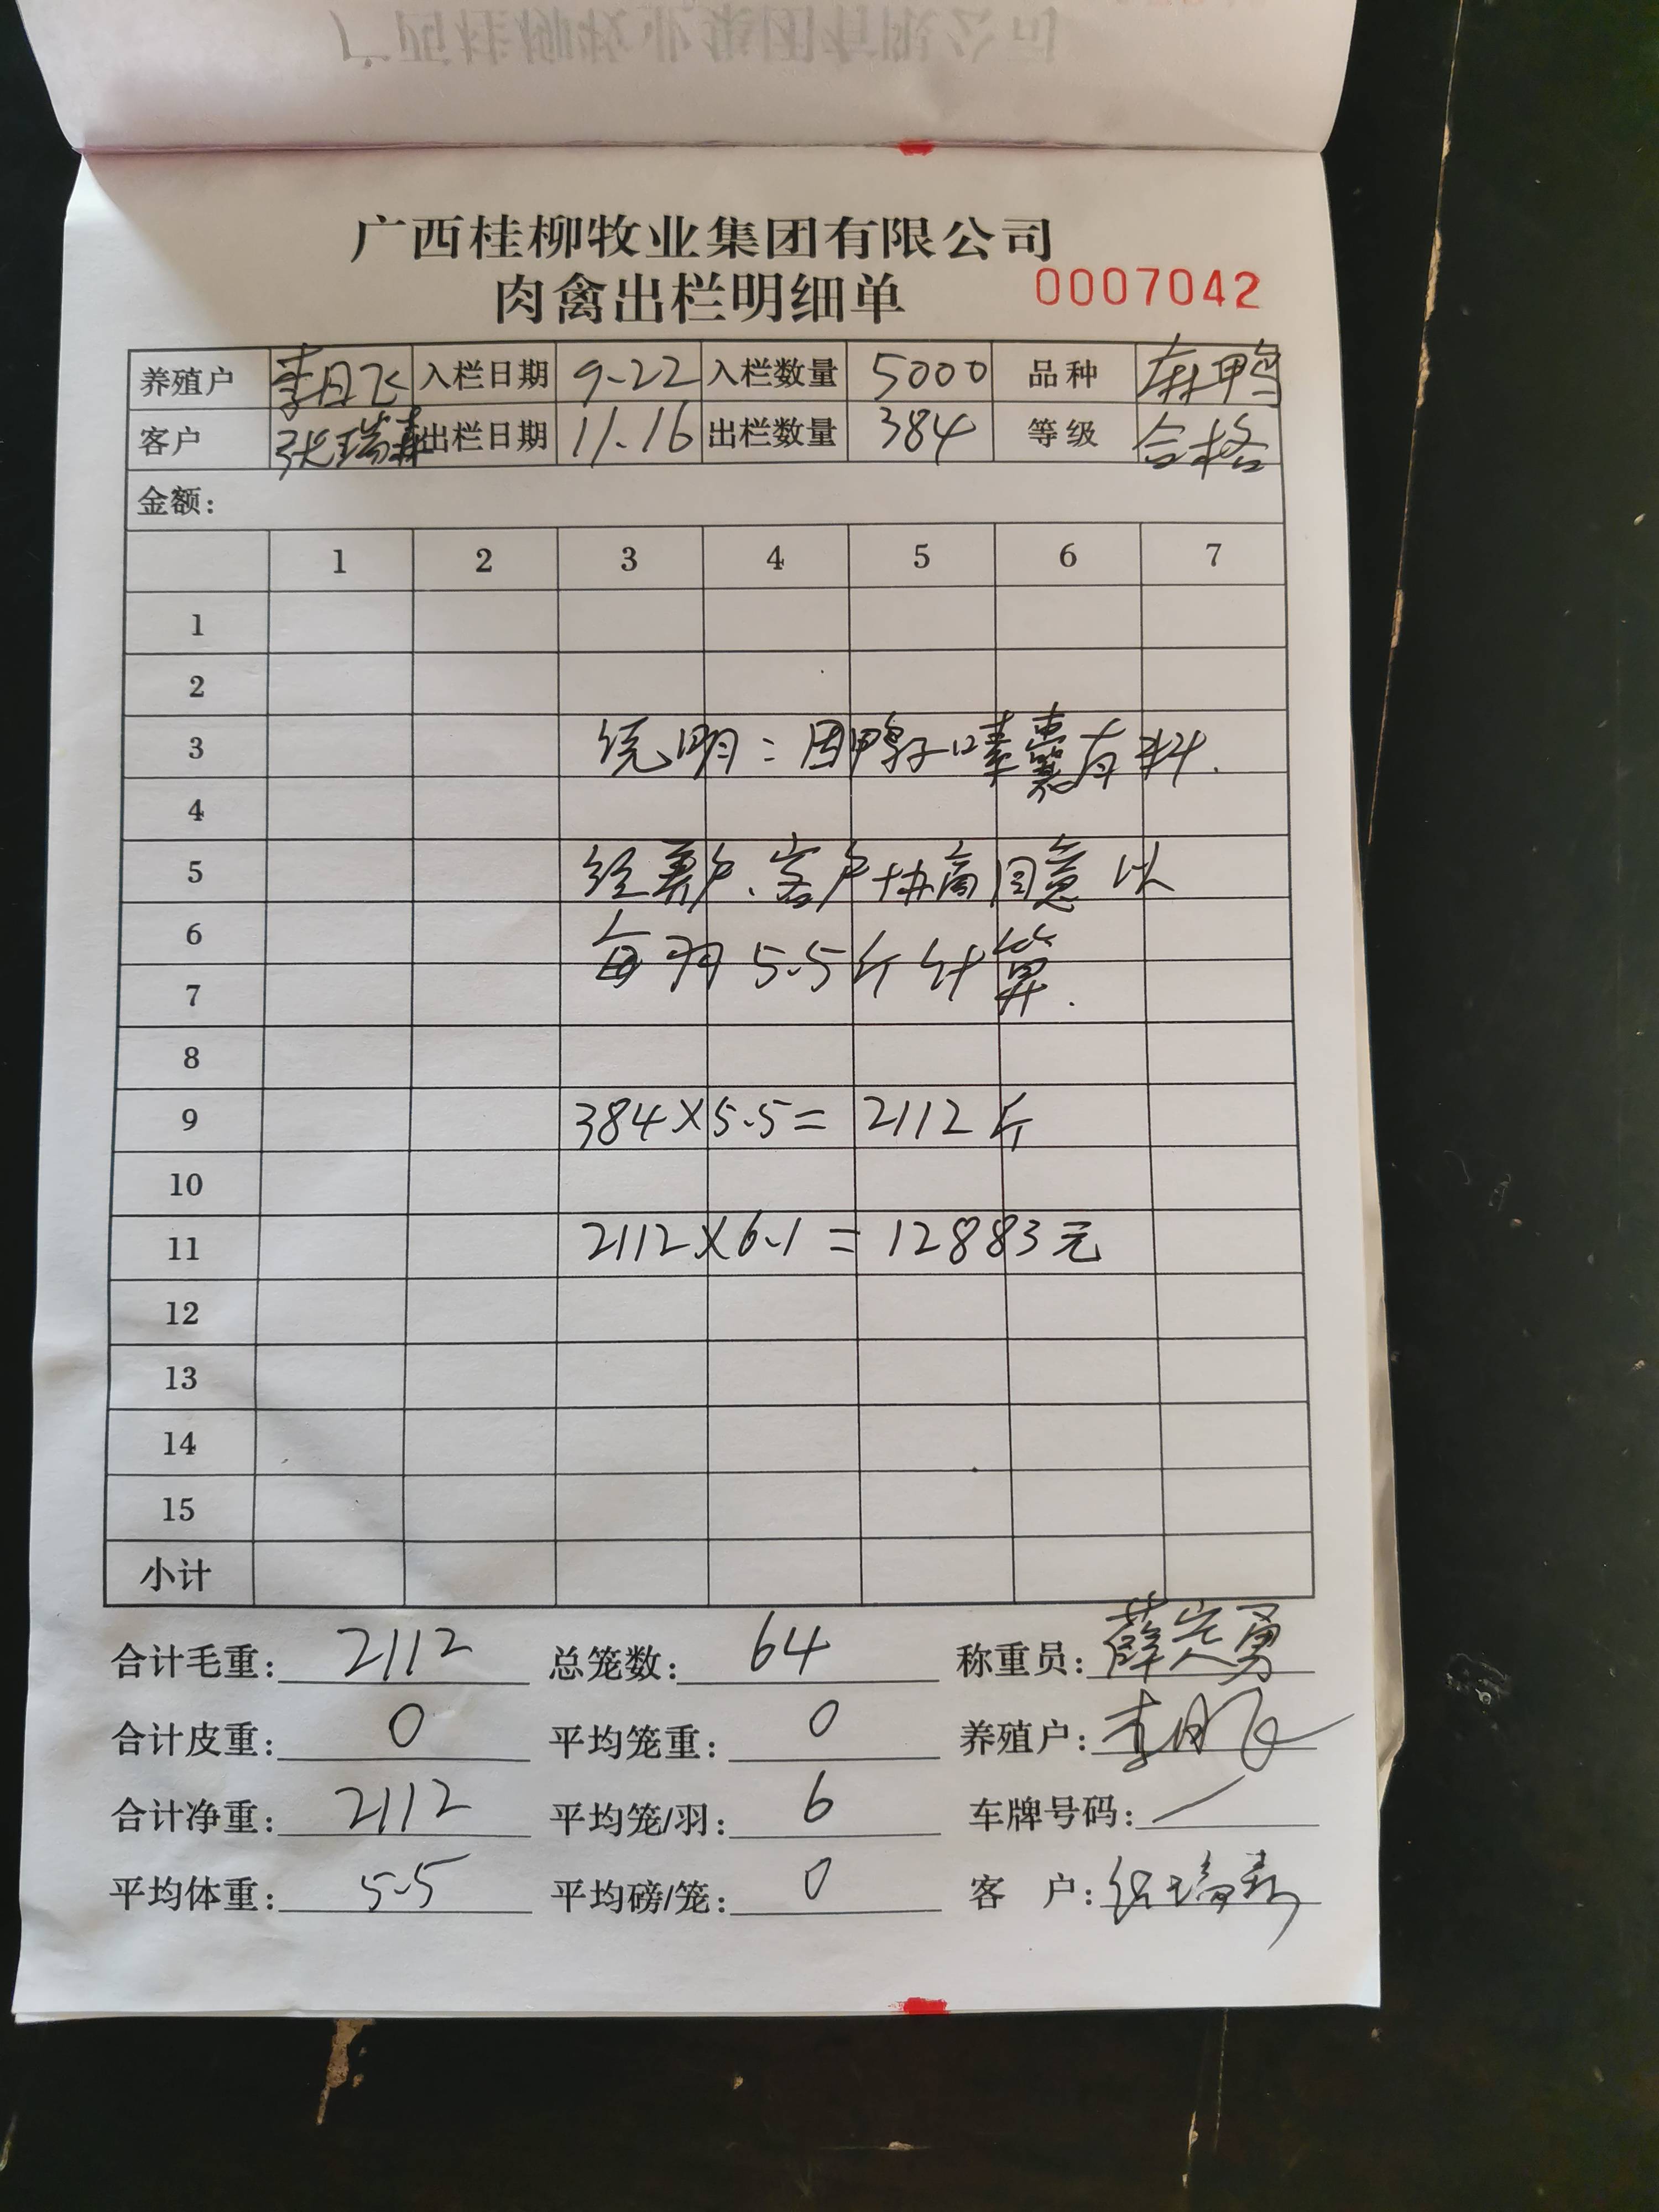 广西桂柳牧业集团有限公司
肉禽出栏明细单 0007042
养殖户 李月飞 入栏日期 9.22 入栏数量 5000 品种 麻鸭
客户 张瑞森 出栏日期 11.16 出栏数量 384 等级 合格
金额:
1 2 3 4 5 6 7
1
2
3 说明:因鸭子嗉囊有料.
4
5 经养户、客户协商同意以
6 每羽5.5斤计算.
7
8
9 384×5.5= 2112斤
10
11 2112×6.1=12883元
12
13
14
15
小计
合计毛重: 2112 总笼数: 64 称重员: 薛定勇
合计皮重: 0 平均笼重: 0 养殖户: 李月飞
合计净重: 2112 平均笼/羽: 6 车牌号码: /
平均体重: 5.5 平均磅/笼: 0 客 户: 张瑞森